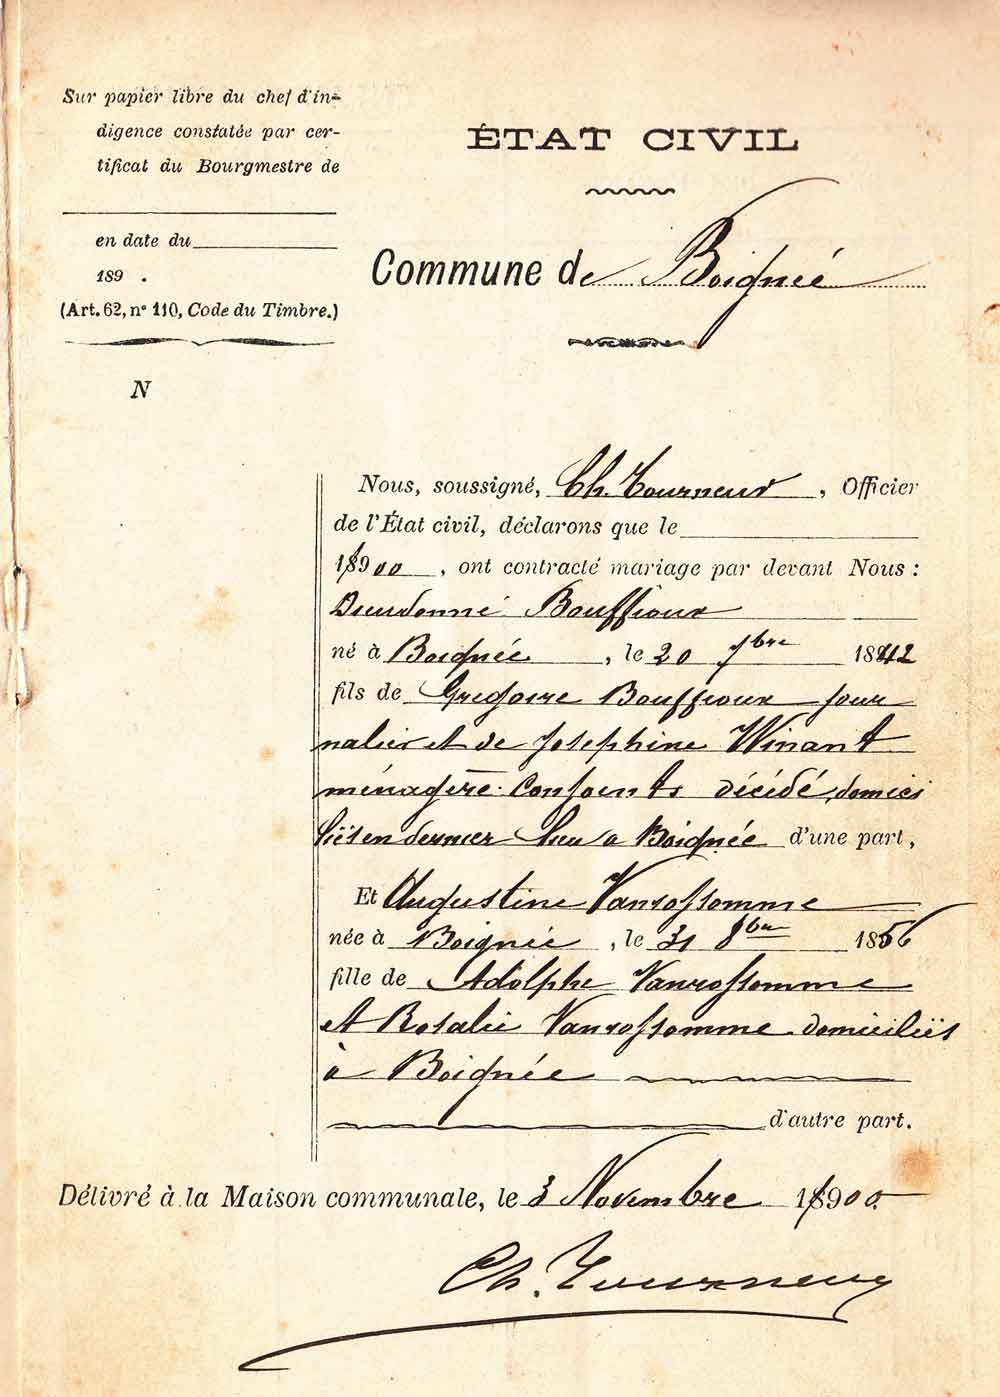 Sur papier libre du chef d'in-
digence constatée par cer-
tificat du Bourgmestre de
en date du
189 .
(Art. 62, n° 110, Code du Timbre.)
N
ÉTAT CIVIL
Commune de Boignée
Nous, soussigné, Ch. Tourneur, Officier
de l'État civil, déclarons que le
18900, ont contracté mariage par devant Nous :
Dieudonné Bouffioux
né à Boignée, le 20 7bre 1842
fils de Grégoire Bouffioux jour
nalier et de Joséphine Winant
ménagère conjoints décédé, domici
liés en dernier lieu à Boignée d'une part,
Et Augustine Vanrossomme
née à Boignée, le 31 8bre 1856
fille de Adolphe Vanrossomme
et Rosalie Vanrossomme domiciliés
à Boignée
d'autre part.
Délivré à la Maison communale, le 3 Novembre 18900
Ch. Tourneur